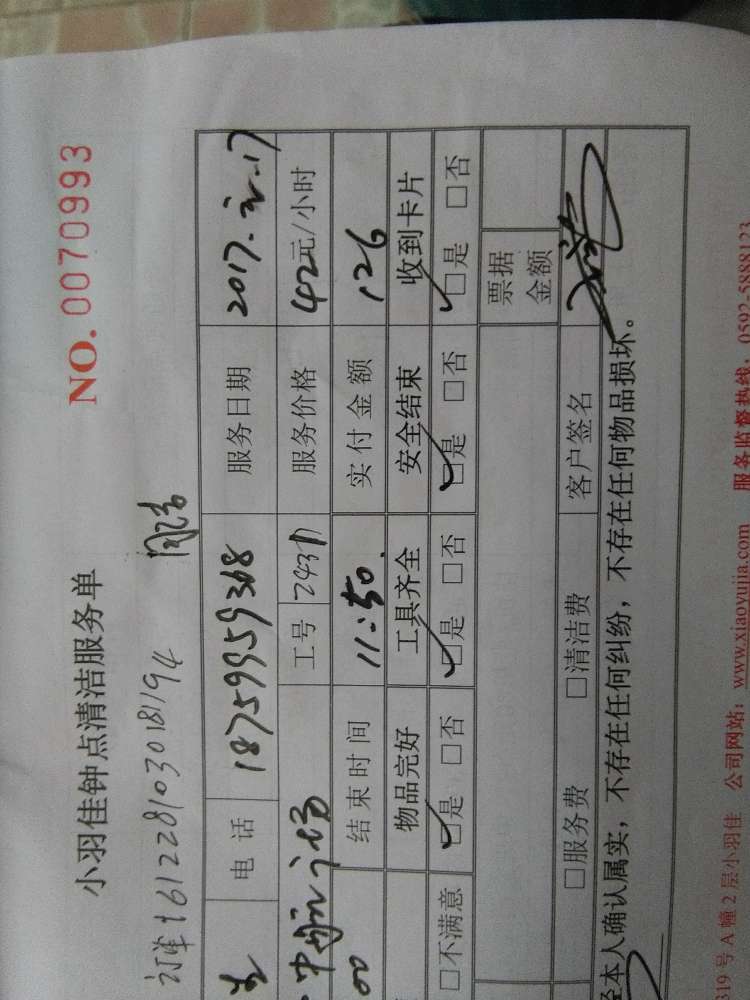 小羽佳钟点清洁服务单
NO.0070993
订单161228103018194
电话 18759959368 服务日期 2017.
中航 工号 服务价格 42元/小时
00 结束时间 11:50. 实付金额 126
物品完好 工具齐全 安全结束 收到卡片
□不满意 □是 □否 □是 □否 □是 □否 □是 □否
票据金额
□服务费 □清洁费 客户签名
经本人确认属实，不存在任何纠纷，不存在任何物品损坏。
319号A幢2层小羽佳 公司网站：www.xiaoyujia.com 服务监督热线：0592-5888123